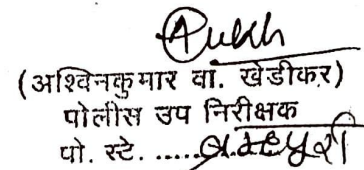 (अश्विनकुमार वा. खेडीकर)
पोलीस उप निरीक्षक
पो. स्टे. .....